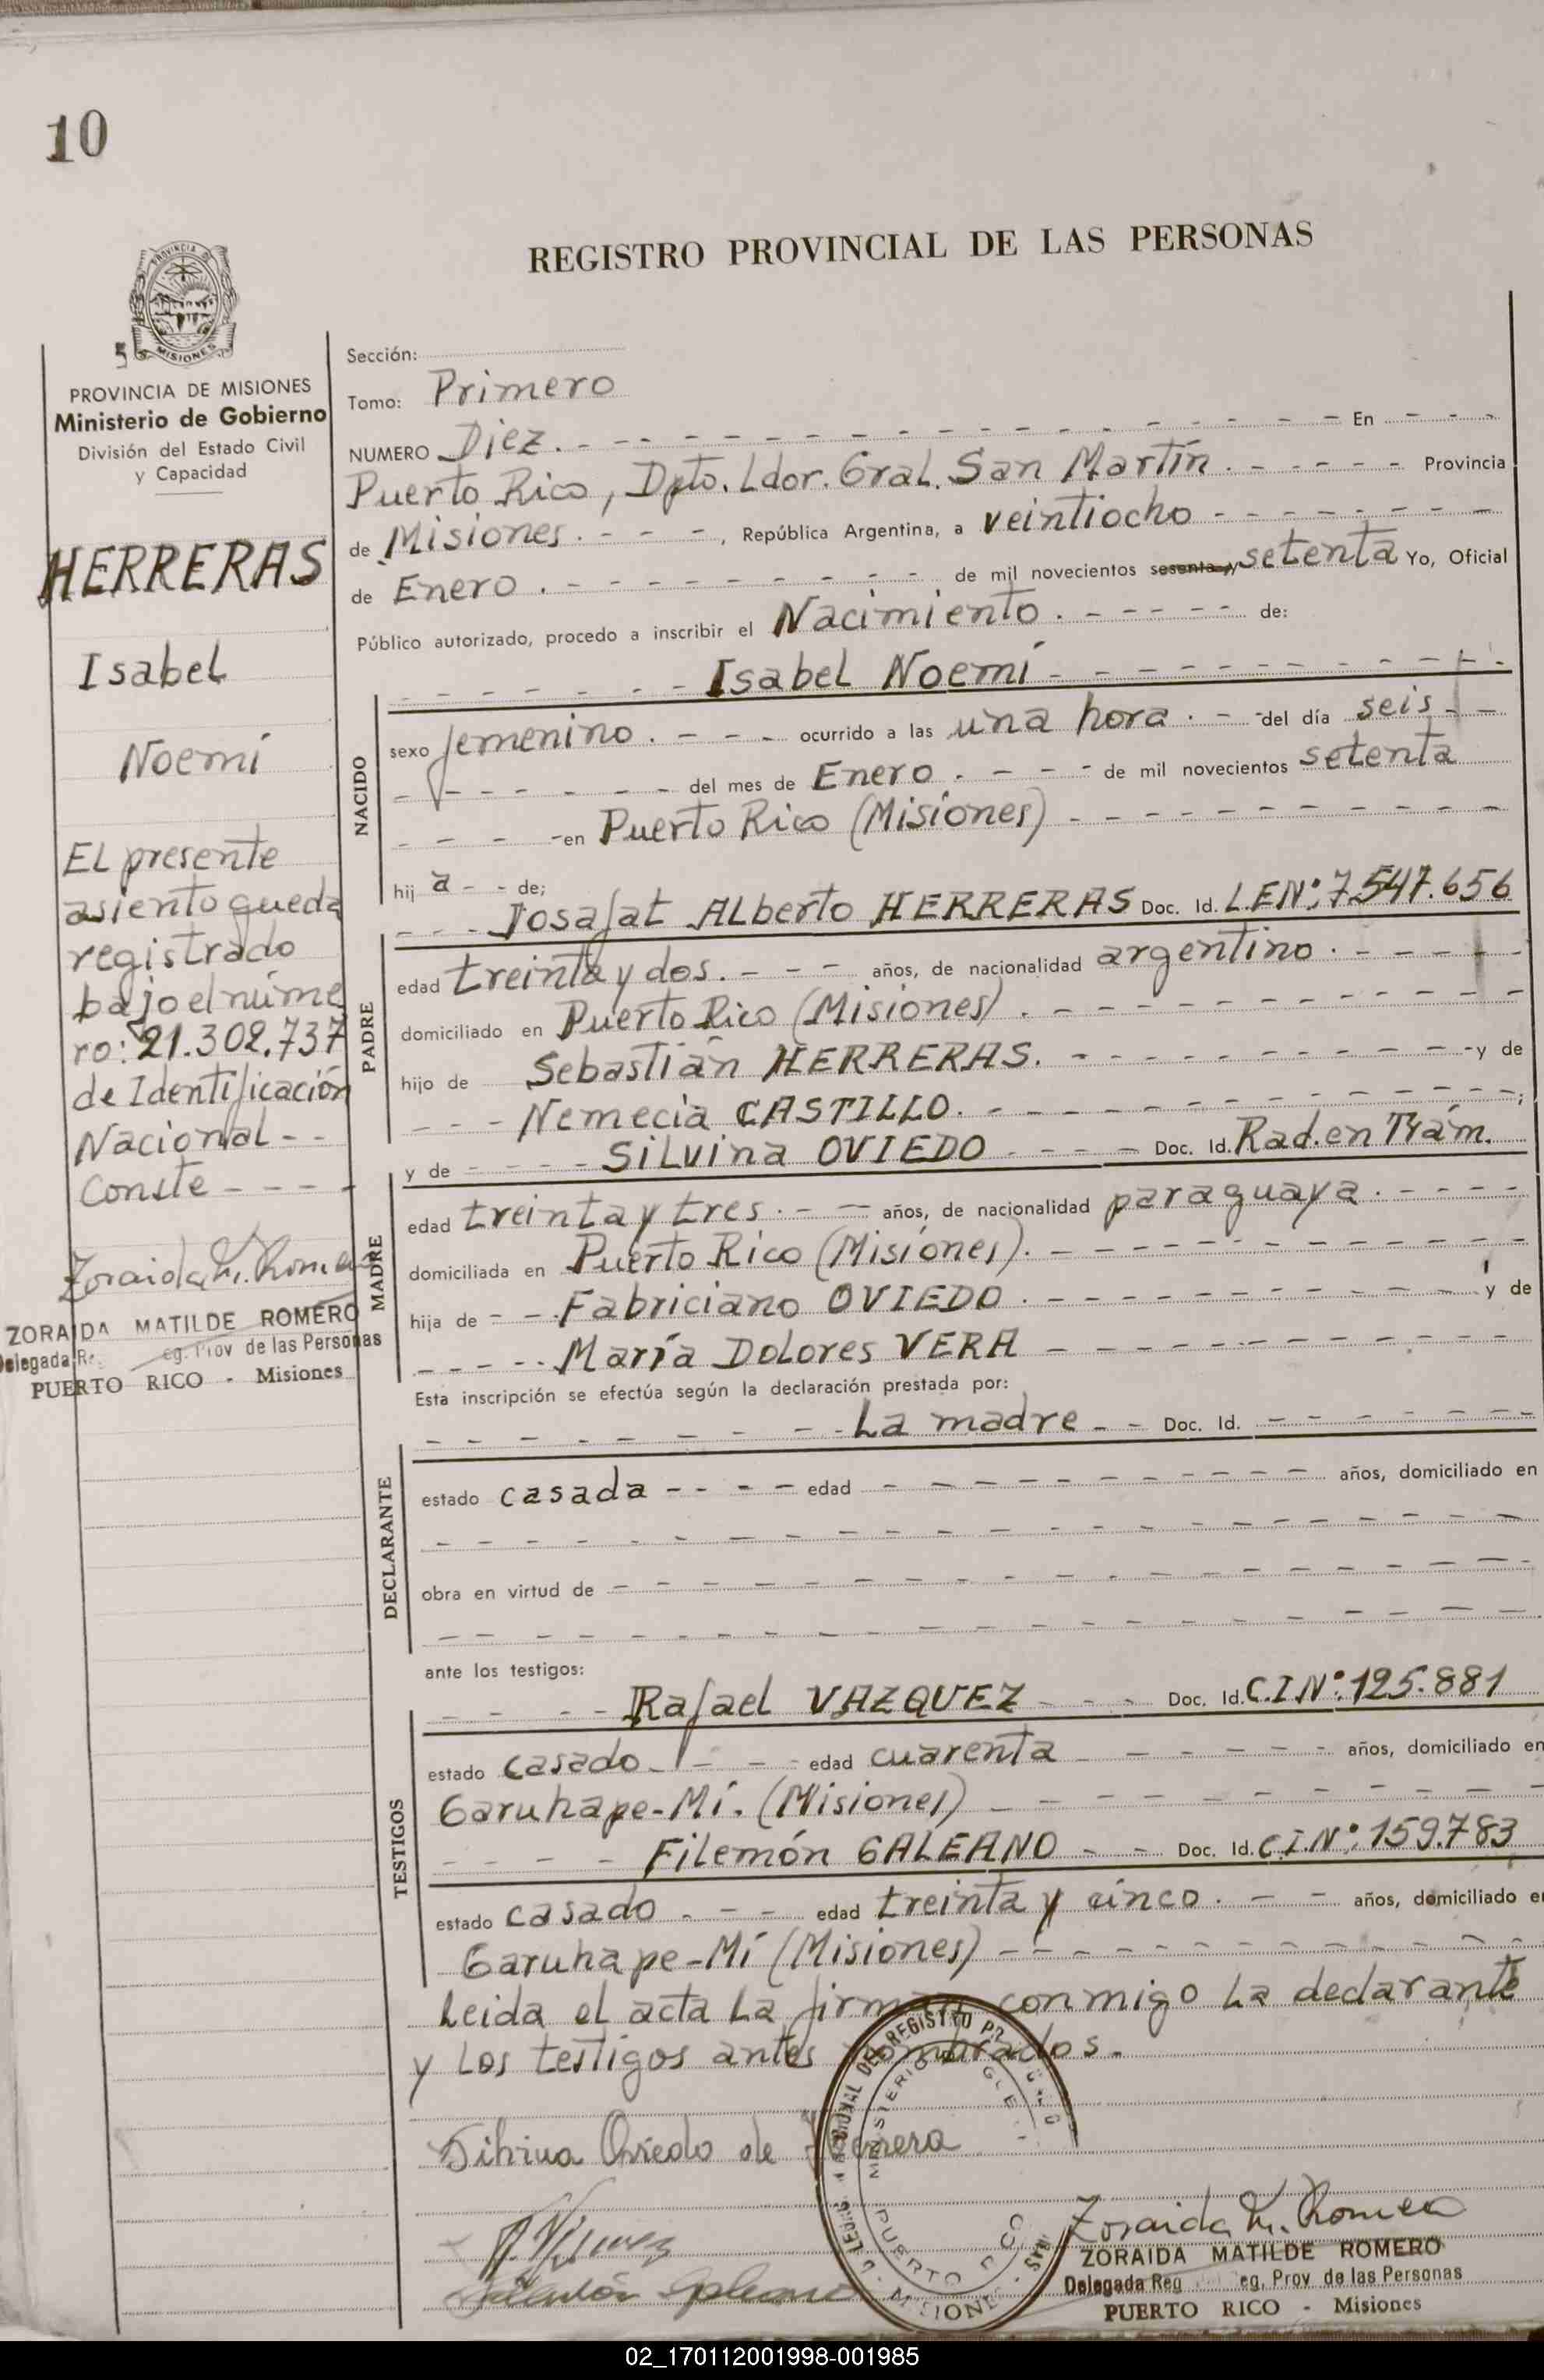 10
REGISTRO PROVINCIAL DE LAS PERSONAS
PROVINCIA
MISIONES
5
PROVINCIA DE MISIONES
Ministerio de Gobierno
División del Estado Civil
y Capacidad
HERRERAS
Isabel
Noemí
El presente
asiento queda
registrado
bajo el núme
ro: 21.302.737
de Identificación
Nacional - -
Conste - - - -
Zoraida M. Romero
ZORAIDA MATILDE ROMERO
Delegada R eg. Prov de las Personas
PUERTO RICO - Misiones
Sección:
Tomo: Primero
NUMERO Diez. - - - - En - - -
Puerto Rico, Dpto. Ldor. Gral. San Martín. - - - - - Provincia
de Misiones. - - -, República Argentina, a veintiocho - - - -
de Enero. - - - - de mil novecientos sesenta y setenta Yo, Oficial
Público autorizado, procedo a inscribir el Nacimiento. - - - - - de:
- - - - Isabel Noemí - - - -
NACIDO
sexo femenino. - - - ocurrido a las una hora. - - del día seis - -
- - - - del mes de Enero. - - - de mil novecientos setenta
- - - en Puerto Rico (Misiones) - - - -
hij a - - de;
- - - Josafat Alberto HERRERAS Doc. Id. L.E.Nº: 7.547.656
PADRE
edad treinta y dos. - - - años, de nacionalidad argentino. - - - -
domiciliado en Puerto Rico (Misiones). - - - -
hijo de Sebastián HERRERAS. - - - - y de
- - - Nemecia CASTILLO. - - - - ;
y de - - - - Silvina OVIEDO - - - - Doc. Id. Rad. en Trám.
MADRE
edad treinta y tres. - - años, de nacionalidad paraguaya. - - - -
domiciliada en Puerto Rico (Misiones). - - - -
hija de - - Fabriciano OVIEDO. - - - - y de
- - - - María Dolores VERA - - - -
Esta inscripción se efectúa según la declaración prestada por:
- - - - La madre - - Doc. Id. - - - -
DECLARANTE
estado casada - - - - edad - - - - años, domiciliado en
- - - -
obra en virtud de - - - -
- - - -
ante los testigos:
- - - - Rafael VAZQUEZ - - - Doc. Id. C.I.Nº: 125.881
TESTIGOS
estado casado - - - edad cuarenta - - - - años, domiciliado en
Garuhape-Mí. (Misiones) - - - -
- - - - Filemón GALEANO - - Doc. Id. C.I.Nº: 159.783
estado casado - - - edad treinta y cinco. - - años, domiciliado en
Garuhape-Mí (Misiones) - - - -
Leida el acta la firman conmigo la declarante
y los testigos antes nombrados.
Silvina Oviedo de Herrera
Filemón Galeano
REGISTRO
MINISTERIO
PUERTO RICO
MISIONES
Zoraida M. Romero
ZORAIDA MATILDE ROMERO
Delegada Reg eg, Prov de las Personas
PUERTO RICO - Misiones
02_170112001998-001985